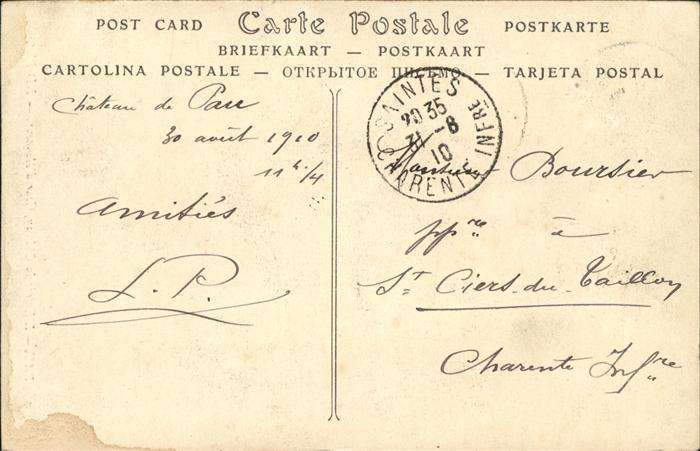 POST CARD Carte Postale POSTKARTE
BRIEFKAART — POSTKAART
CARTOLINA POSTALE — ОТКРЫТОЕ ПИСЬМО — TARJETA POSTAL
Château de Pau
30 août 1910
11h 1/4
Amitiés
L. P.
SAINTES
20 35
31 - 8
10
CHARENTE INFRE
Monsieur Boursier
ppre à
St Ciers-du-Taillon
Charente Infre